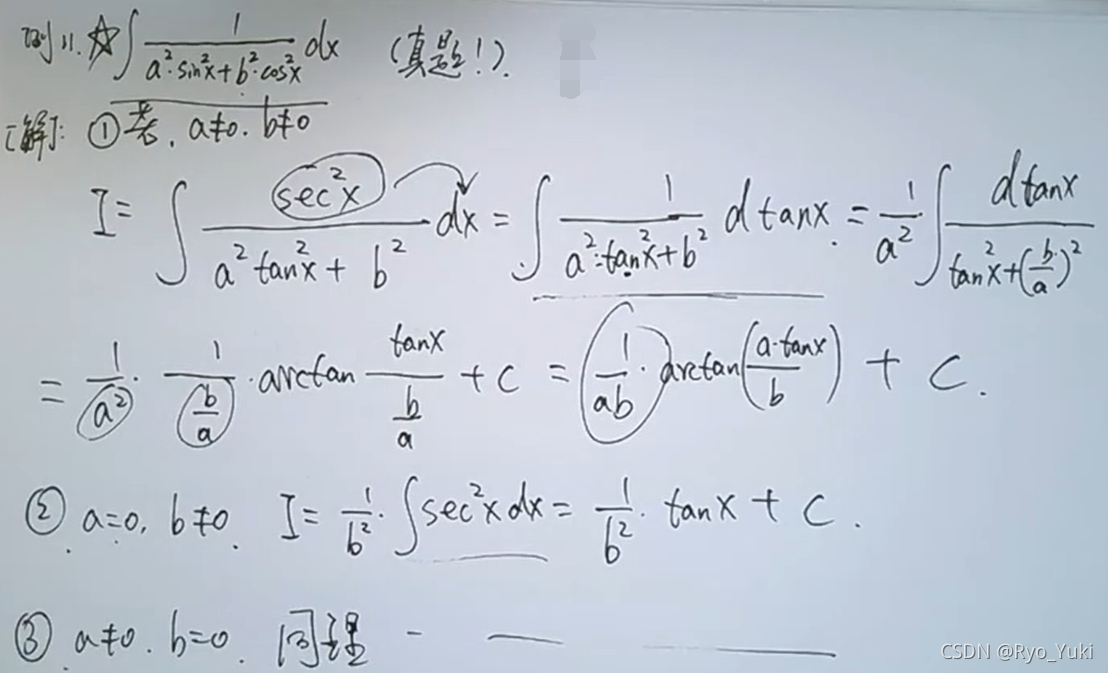 例11. ☆ ∫ 1/(a²·sin²x+b²·cos²x) dx (真题!).
[解]: ① 若. a≠0. b≠0
I = ∫ sec²x/(a²tan²x + b²) dx = ∫ 1/(a²·tan²x+b²) d tanx. = 1/a² ∫ dtanx/(tan²x+(b/a)²)
= 1/a² · 1/(b/a) · arctan tanx/(b/a) + C = 1/ab · arctan(a·tanx/b) + C.
② a=0, b≠0. I = 1/b² · ∫sec²x dx = 1/b² · tanx + C.
③ a≠0. b=0. 同理 - — —
CSDN @Ryo_Yuki